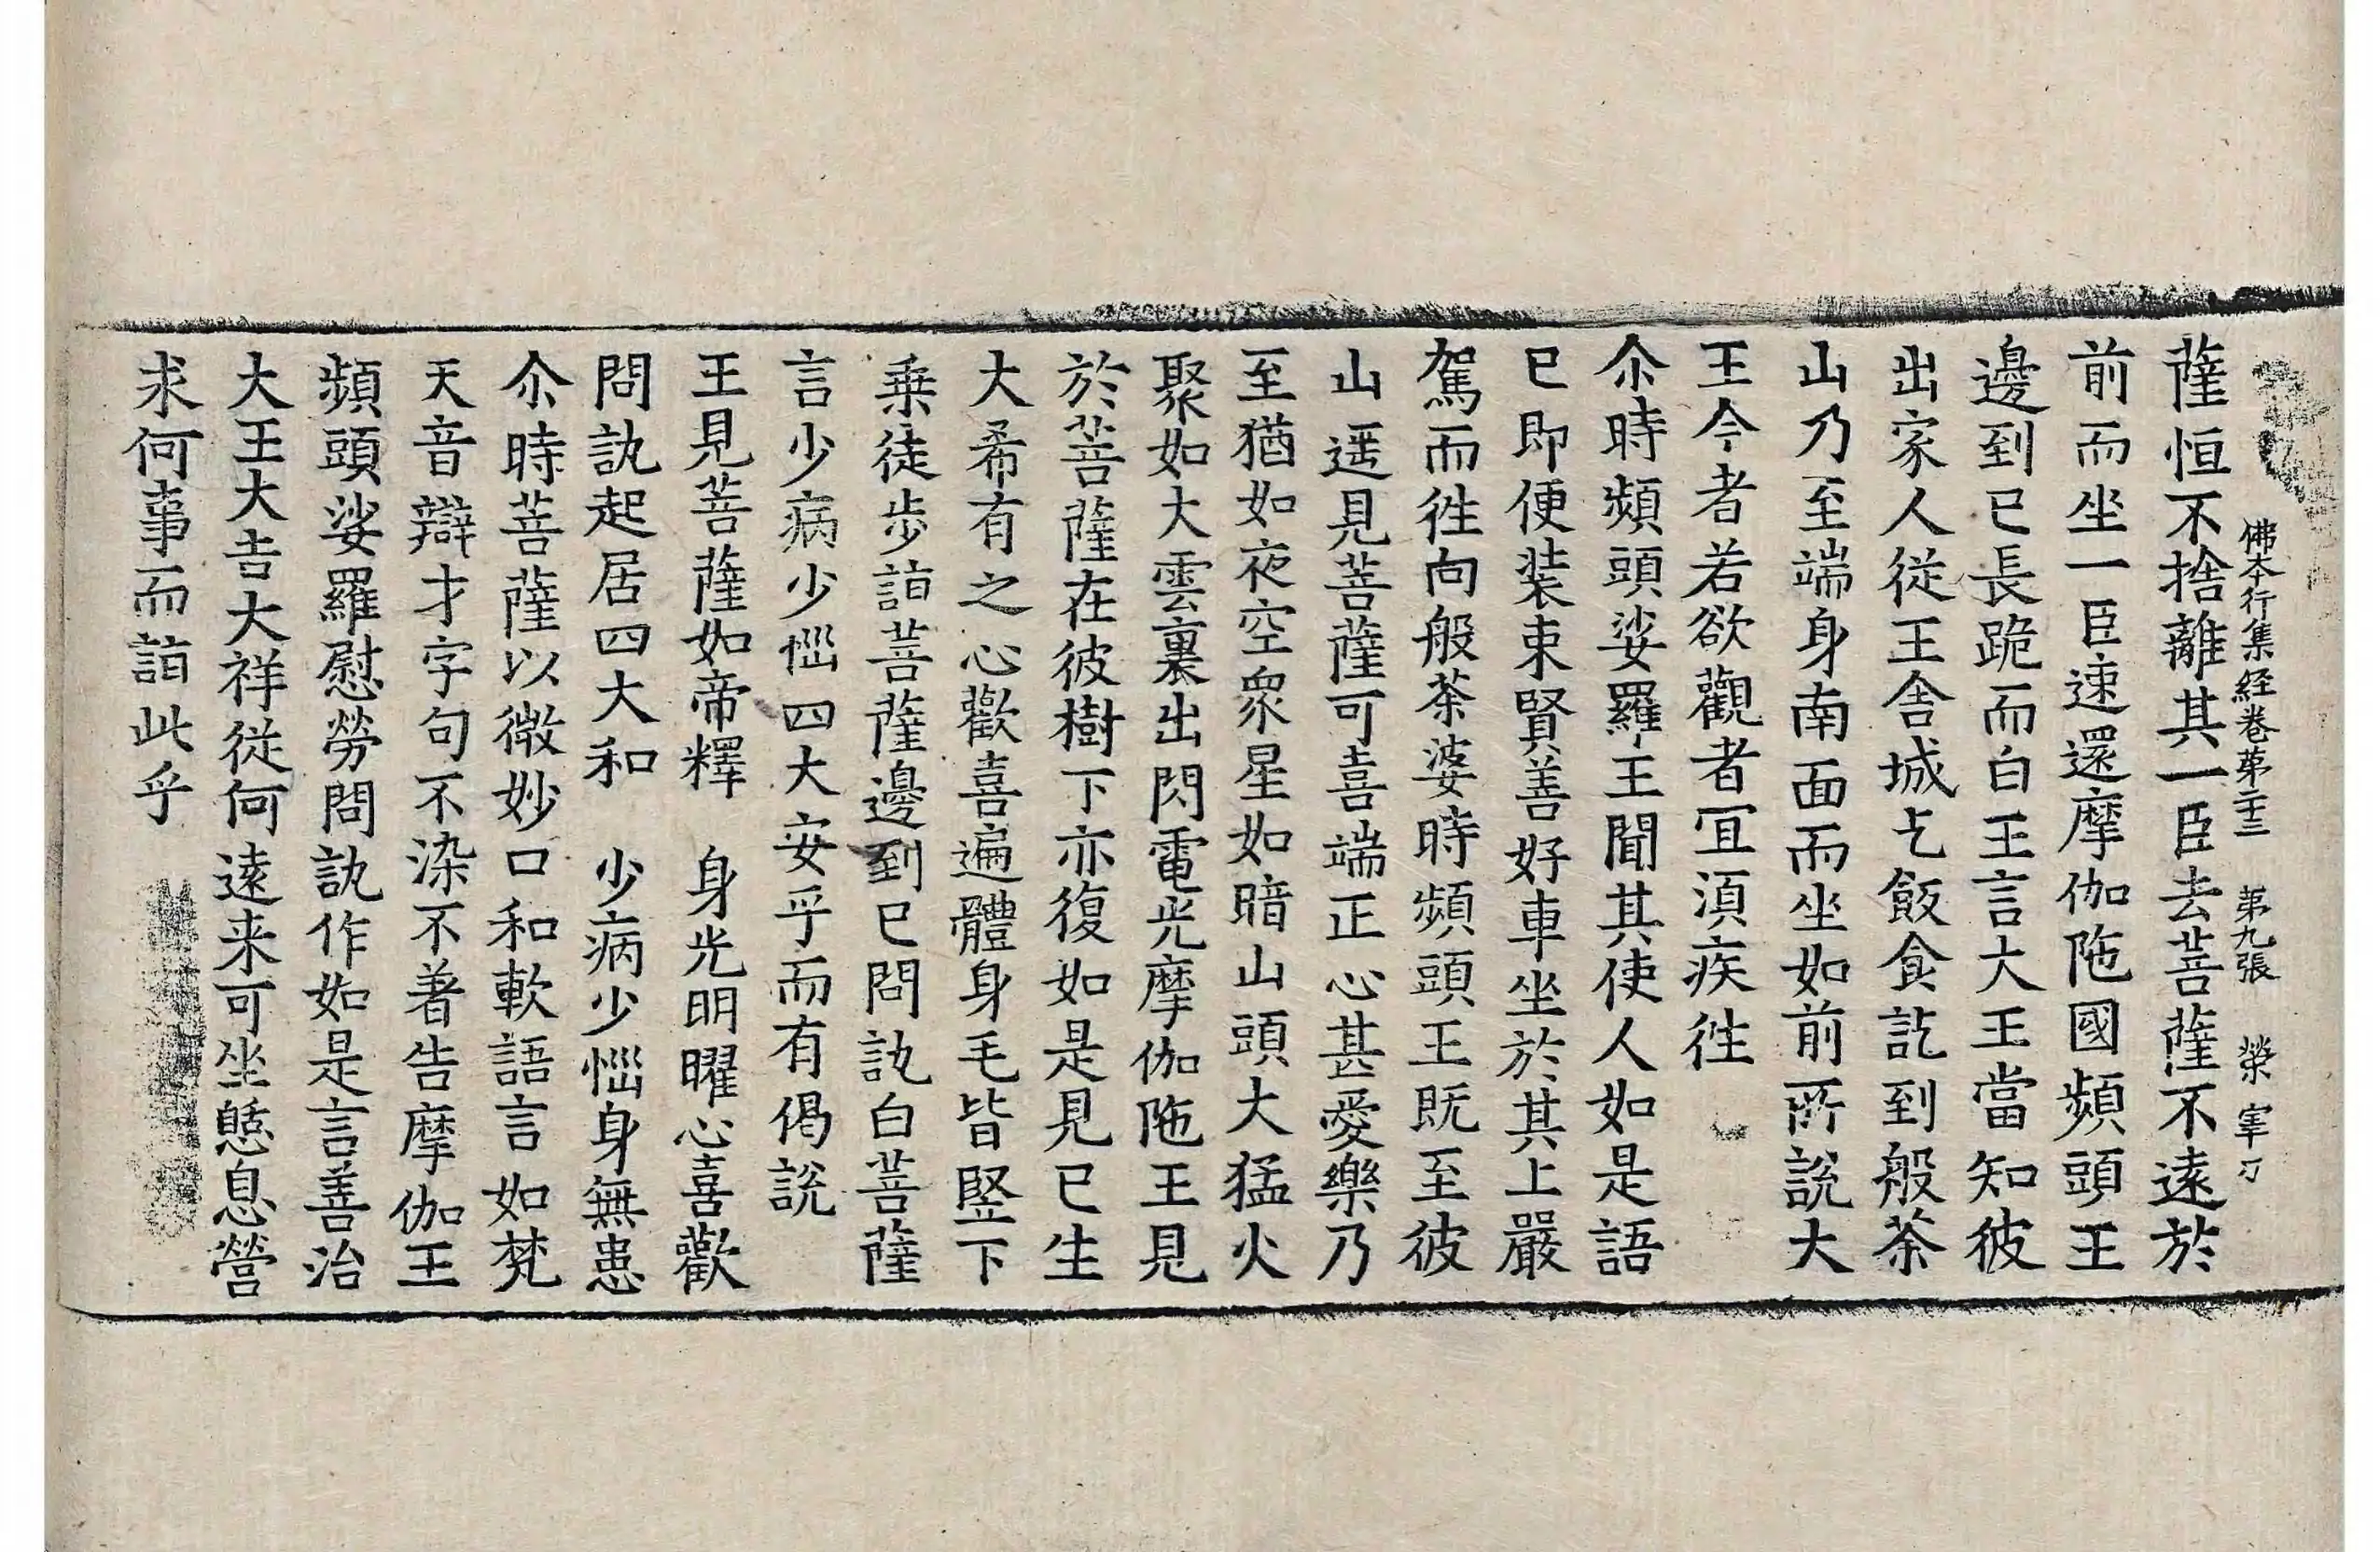 佛本行集経巻苐二十三　苐九張　榮　宰刀
薩恒不捨離其一臣去菩薩不遠於
前而坐一臣速還摩伽陁國頻頭王
邊到已長跪而白王言大王當知彼
出家人從王舎城乞飯食訖到般茶
山乃至端身南面而坐如前所說大
王今者若欲觀者冝湏疾徃
尒時頻頭娑羅王聞其使人如是語
已即便裝束賢善好車坐於其上嚴
駕而徃向般茶婆時頻頭王既至彼
山遥見菩薩可喜端正心甚愛樂乃
至猶如夜空衆星如暗山頭大猛火
聚如大雲裏出閃電光摩伽陁王見
於菩薩在彼樹下亦復如是見已生
大希有之心歡喜遍體身毛皆竪下
乗徒步詣菩薩邊到已問訊白菩薩
言少病少惱四大安乎而有偈說
王見菩薩如帝釋　身光明曜心喜歡
問訊起居四大和　少病少惱身無患
尒時菩薩以微妙口和軟語言如梵
天音辯才字句不染不著告摩伽王
頻頭娑羅慰勞問訊作如是言善治
大王大吉大祥從何遠来可坐憇息營
求何事而詣此乎